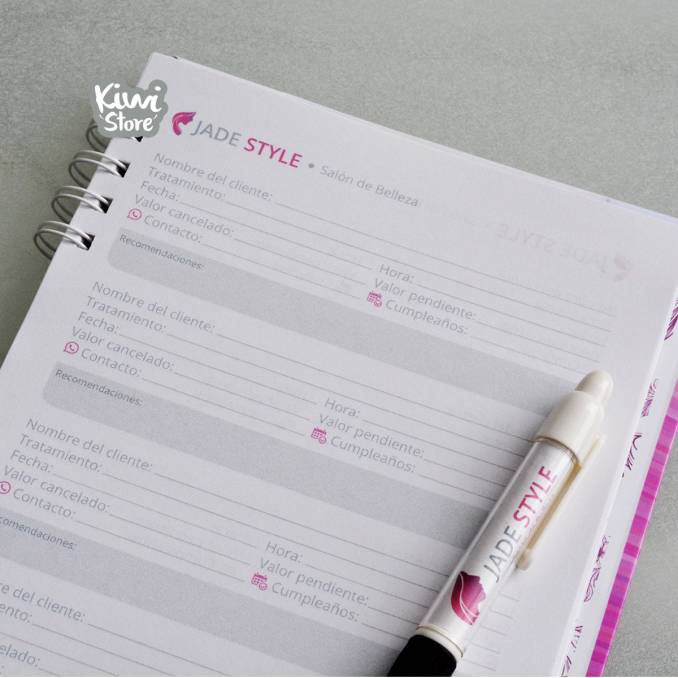 Kiwi
Store
JADE STYLE • Salón de Belleza
Nombre del cliente:
Tratamiento:
Fecha:
Hora:
Valor cancelado:
Valor pendiente:
Contacto:
Cumpleaños:
Recomendaciones:
Nombre del cliente:
Tratamiento:
Fecha:
Hora:
Valor cancelado:
Valor pendiente:
Contacto:
Cumpleaños:
Recomendaciones:
Nombre del cliente:
Tratamiento:
Fecha:
Hora:
Valor cancelado:
Valor pendiente:
Contacto:
Cumpleaños:
comendaciones:
e del cliente:
iento:
elado:
JADE STYLE